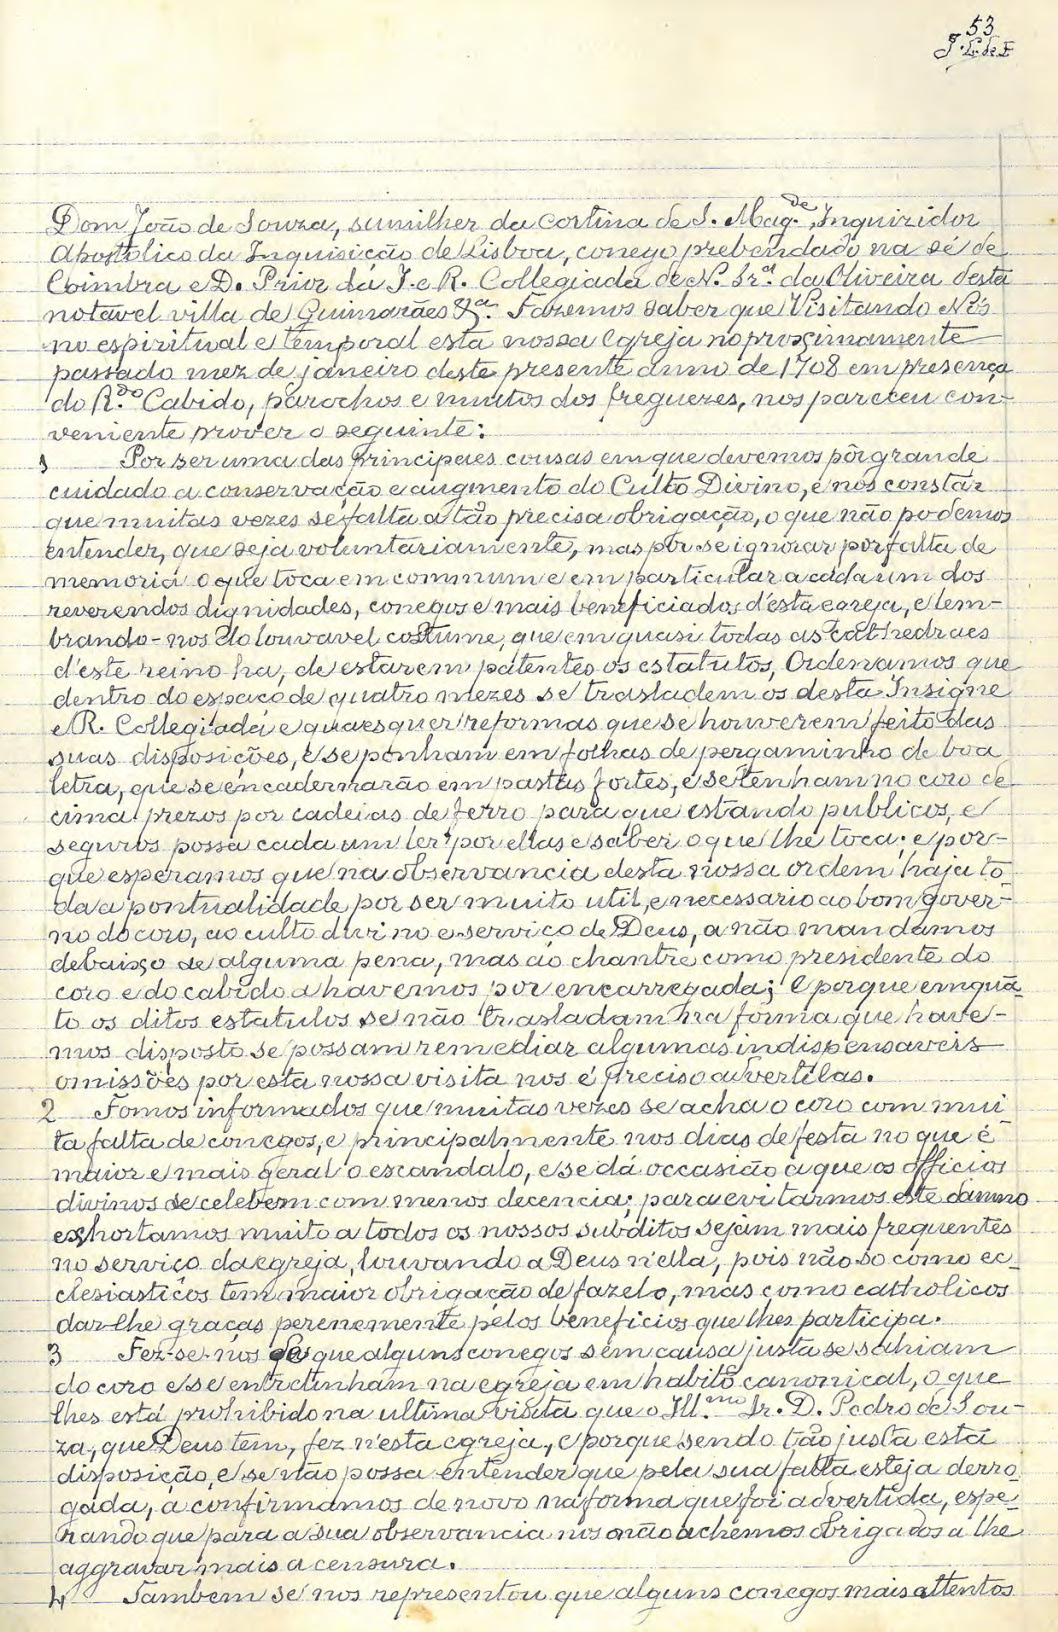 53
Dom João de Souza, sumilher da cortina de S. Mag.de, Inquizidor
Apostolico da Inquisição de Lisboa, conego prebendado na sé de
Coimbra e D. Prior da I. e R. Collegiada de N. Sr.a da Oliveira desta
notavel villa de Guimarães &.a Fazemos saber que Visitando Nós
no espiritual e temporal esta nossa Egreja no proximamente
passado mez de janeiro deste presente anno de 1708 em presença
do R.do Cabido, parochos e muitos dos freguezes, nos pareceu con-
veniente prover o seguinte:
1 Por ser uma das principaes cousas em que devemos pôr grande
cuidado a conservação e augmento do Culto Divino, e nos constar
que muitas vezes se falta a tão precisa obrigação, o que não podemos
entender, que seja voluntariamente, mas por se ignorar por falta de
memoria o que toca em commum e em particular a cada um dos
reverendos dignidades, conegos e mais beneficiados d'esta egreja, e lem-
brando-nos do louvavel costume, que em quasi todas as cathedraes
d'este reino ha, de estarem patentes os estatutos, Ordenamos que
dentro do espaço de quatro mezes se trasladem os desta Insigne
e R. Collegiada e quaesquer reformas que se houverem feito das
suas disposições, e se ponham em folhas de pergaminho de boa
letra, que se encadernarão em pastas fortes, e se tenham no coro de
cima prezos por cadeias de ferro para que estando publicos, e
seguros possa cada um ler por elles e saber o que lhe toca; e por-
que esperamos que na observancia desta nossa ordem haja to-
da a pontualidade por ser muito util, e necessario ao bom gover-
no do coro, ao culto divino e serviço de Deus, a não mandamos
debaixo de alguma pena, mas ao chantre como presidente do
coro e do cabido a havemos por encarregada; E porque emquã-
to os ditos estatutos se não trasladam na forma que have-
mos disposto se possam remediar algumas indispensaveis
omissões por esta nossa visita nos é preciso advertilas.
2 Fomos informados que muitas vezes se acha o coro com mui
ta falta de conegos, e principalmente nos dias de festa no que é
maior e mais geral o escandalo, e se dá occasião a que os officios
divinos se celebem com menos decencia; para evitarmos este damno
exhortamos muito a todos os nossos subditos sejam mais frequentes
no serviço da egreja, louvando a Deus n'ella, pois não só como ec-
clesiasticos tem maior obrigação de fazelo, mas como catholicos
dar-lhe graças perenemente pelos beneficios que lhes participa.
3 Fez-se-nos que alguns conegos sem causa justa se sahiam
do coro e se entretinham na egreja em habito canonical, o que
lhes está prohibido na ultima visita que o Ill.mo Sr. D. Pedro de Sou-
za, que Deus tem, fez n'esta egreja, e porque sendo tão justa esta
disposição, e se não possa entender que pela sua falta esteja derro-
gada, a confirmamos de novo na forma que foi advertida, espe-
rando que para a sua observancia nos não achemos obrigados a lhe
aggravar mais a censura.
4 Tambem se nos representou que alguns conegos mais attentos